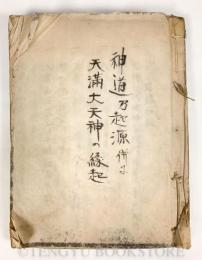 神道乃起源併に
天満大天神の縁起
©TENGYU BOOKSTORE